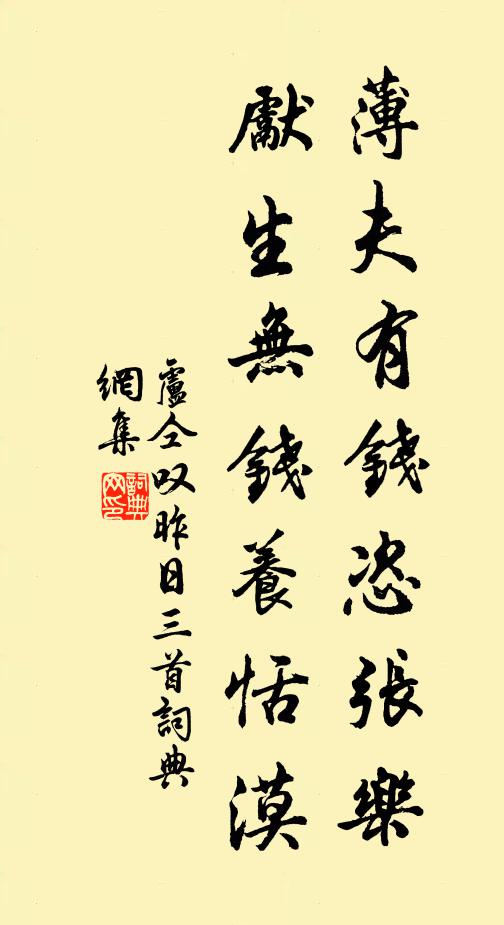 薄夫有錢恣張樂
獻生無錢養恬漠
盧仝叹昨日三首詞典
網集
詞典
网印